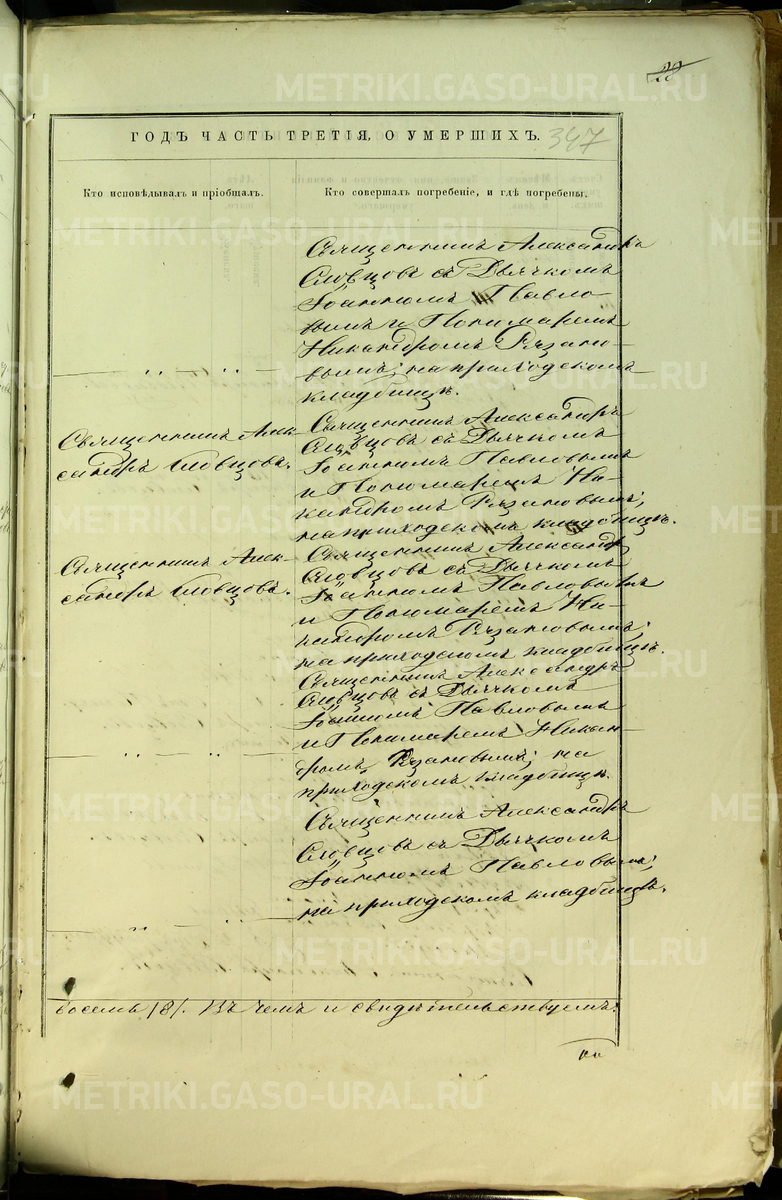 28
ГОДЪ ЧАСТЬ ТРЕТІЯ, О УМЕРШИХЪ.
347
Кто исповѣдывалъ и пріобщалъ.
Кто совершалъ погребеніе, и гдѣ погребены.
Священникъ Александръ
Словцовъ съ Дьячкомъ
Іоанномъ Павло-
вымъ и Пономаремъ
Никандромъ Рязано-
вымъ; на приходскомъ
кладбищѣ.
Священникъ Алек-
сандръ Словцовъ.
Священникъ Александръ
Словцовъ съ Дьячкомъ
Іоанномъ Павловымъ
и Пономаремъ Ни-
кандромъ Рязановымъ;
на приходскомъ кладбищѣ.
Священникъ Алек-
сандръ Словцовъ.
Священникъ Александръ
Словцовъ съ Дьячкомъ
Іоанномъ Павловымъ
и Пономаремъ Ни-
кандромъ Рязановымъ;
на приходскомъ кладбищѣ.
Священникъ Александръ
Словцовъ съ Дьячкомъ
Іоанномъ Павловымъ
и Пономаремъ Никан-
дромъ Рязановымъ; на
приходскомъ кладбищѣ.
Священникъ Александръ
Словцовъ съ Дьячкомъ
Іоанномъ Павловымъ;
на приходскомъ кладбищѣ.
восемь /8/. Въ чемъ и свидѣтельствуемъ:
METRIKI.GASO-URAL.RU